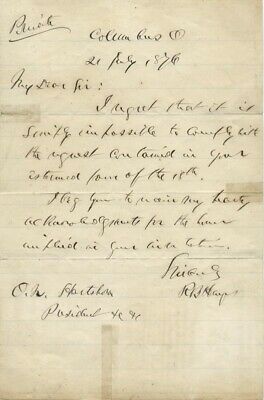 Private
Columbus O
21 July 1876
My Dear Sir:
I regret that it is
simply impossible to comply with
the request contained in your
esteemed favor of the 18th.
I beg you to receive my hearty
acknowledgments for the honor
implied in your invitation.
Sincerely
R B Hayes
O. N. Hartshorn
President &c &c